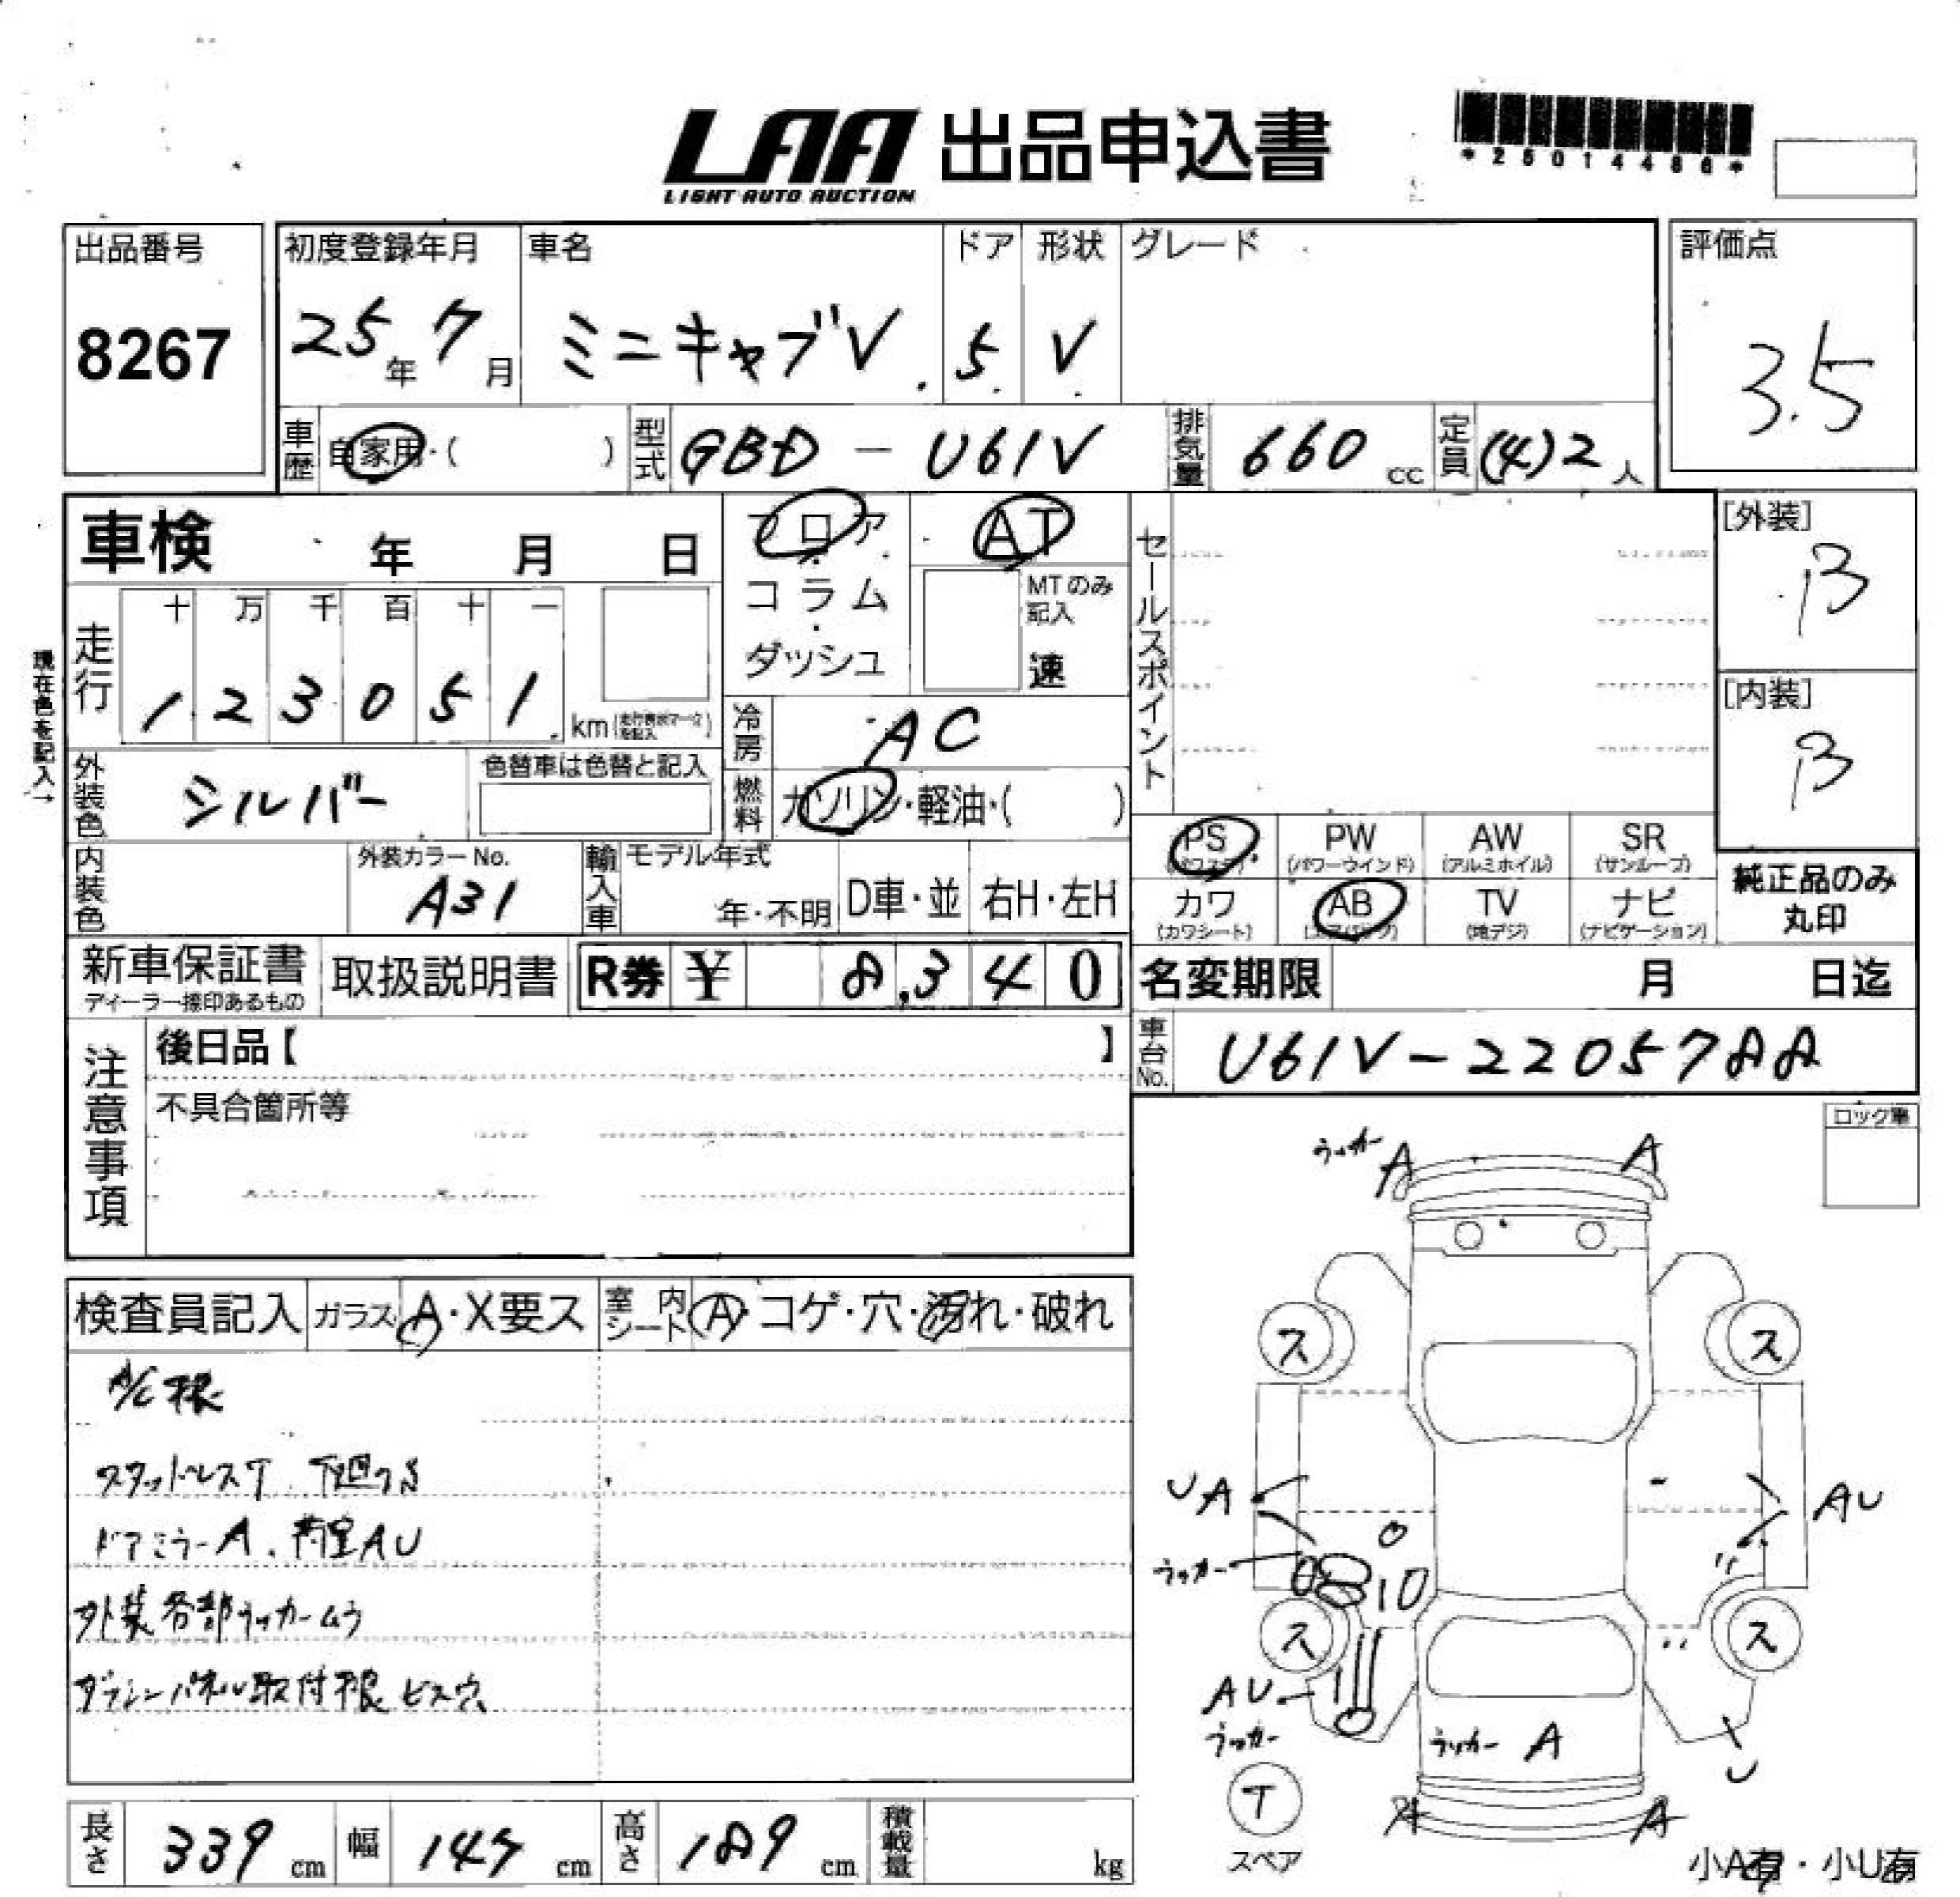 LAA 出品申込書
LIGHT AUTO AUCTION
*25014486*
出品番号
8267
初度登録年月
25年 7月
車名
ミニキャブV
ドア
5
形状
V
グレード
評価点
3.5
車歴 自家用・( )
型式 GBD - U61V
排気量 660 cc
定員 (4)2人
車検 年 月 日
フロア
コラム
ダッシュ
AT
MTのみ
記入
速
セールスポイント
[外装]
B
[内装]
B
現在色を記入→
走行
十 万 千 百 十 一
1 2 3 0 5 1 km
冷房 AC
外装色 シルバー
色替車は色替と記入
燃料 ガソリン・軽油・( )
内装色
外装カラーNo.
A31
輸入車
モデル年式
年・不明
D車・並
右H・左H
PS (パワステ)
PW (パワーウインド)
AW (アルミホイル)
SR (サンルーフ)
カワ (カワシート)
AB (エアバック)
TV (地デジ)
ナビ (ナビゲーション)
純正品のみ
丸印
新車保証書
ディーラー捺印あるもの
取扱説明書
R券 ¥ 8,340
名変期限 月 日迄
車台No. U61V-2205788
注意事項
後日品【 】
不具合箇所等
ロック車
検査員記入
ガラス A・X要ス
室内シート A・コゲ・穴・汚れ・破れ
スタッドレスT 下廻りS
ドアミラーA、荷室AU
外装各部ラッカームラ
パネル取付痕 ビス穴
ラッカー A A
ス ス
UA
AU
ラッカー
ス ス
AU
ラッカー
ラッカー A
U
T
スペア
A A
小A有・小U有
長さ 339 cm
幅 147 cm
高さ 189 cm
積載量 kg